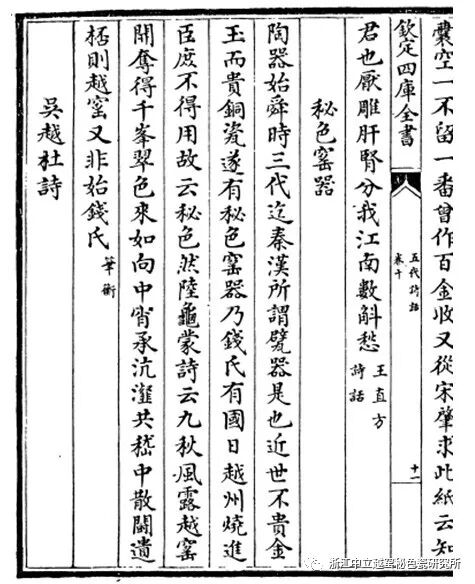 囊空一不留一番曾作百金收又從宋肇求此紙云知
欽定四庫全書
五代詩話
卷十
十一
君也厭雕肝腎分我江南數斛愁 王直方
詩話
秘色窰器
陶器始舜時三代迄秦漢所謂甓器是也近世不貴金
玉而貴銅瓷遂有秘色窰器乃錢氏有國日越州燒進
臣庶不得用故云秘色然陸龜蒙詩云九秋風露越窰
開奪得千峯翠色來如向中宵承沆瀣共嵇中散鬬遺
桮則越窰又非始錢氏 筆衡
吳越杜詩
浙江中立越窑秘色瓷研究所